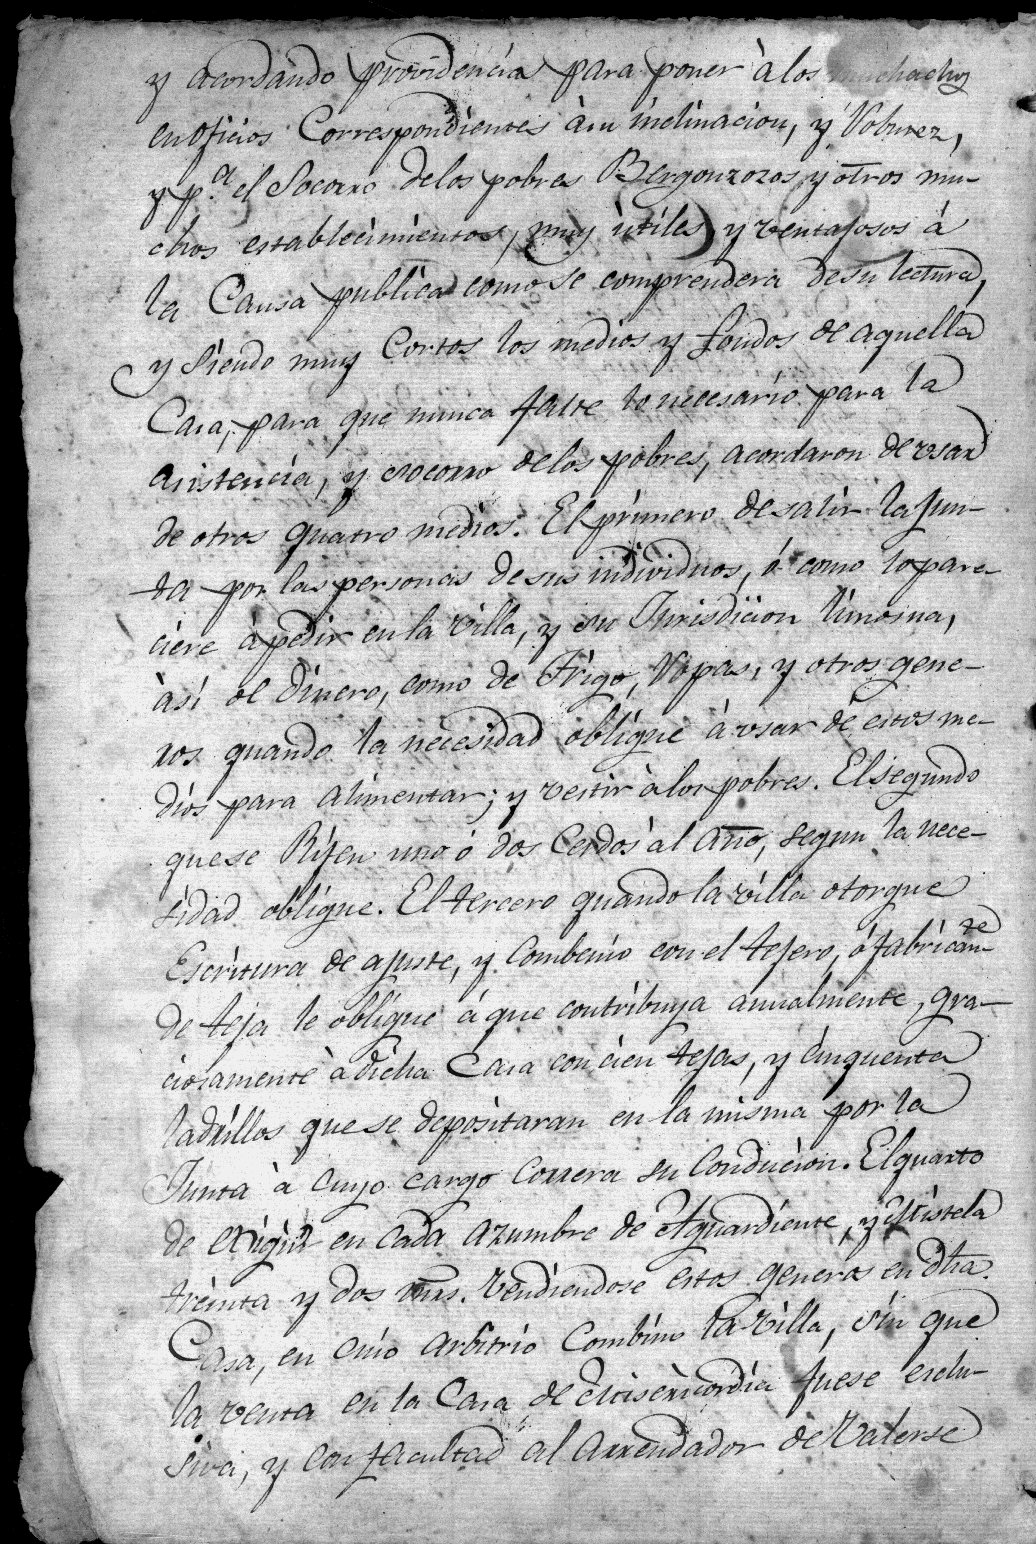 y acordando providencia para poner à los muchachos
en oficios Correspondientes à su inclinacion, y Roburez,
y p.ª el Socorro de los pobres Bergonzozos, y otros mu-
chos establecimientos, muy ùtiles y ventajosos á
la Causa publica como se comprendera de su lectura,
y Siendo muy Cortos los medios y fondos de aquella
Casa, para que nunca falte lo necesario para la
asistencia, y socorro de los pobres, acordaron de usar
de otros quatro medios. El primero de salir la Jun-
ta por las personas de sus individuos, ó como lo pare-
ciere à pedir en la villa, y su Jurisdicion limosna,
àsi de Dinero, como de Trigo, Ropas, y otros gene-
ros quando la necesidad obligue á usar de estos me-
dios para alimentar; y vestir à los pobres. El segundo
que se Rifen uno ó dos Cerdos àl año, segun la nece-
sidad obligue. El tercero quando la villa otorgue
Escritura de ajuste, y Combenio con el tejero, ó fabrican-te
de teja le obligue á que contribuya anualmente, gra-
ciosamente à dicha Casa con cien tejas, y cinquenta
ladrillos que se depositaran en la misma por la
Junta à cuyo cargo Correra su Conducion. El quarto
de exigir en cada azumbre de Aguardiente, y Mistela
treinta y dos mrs. vendiendose estos generos en dha.
Casa, en cuio arbitrio Combino la villa, sin que
la venta en la Casa de Misericordia fuese esclu-
siva, y con facultad al Arrendador de Valerse